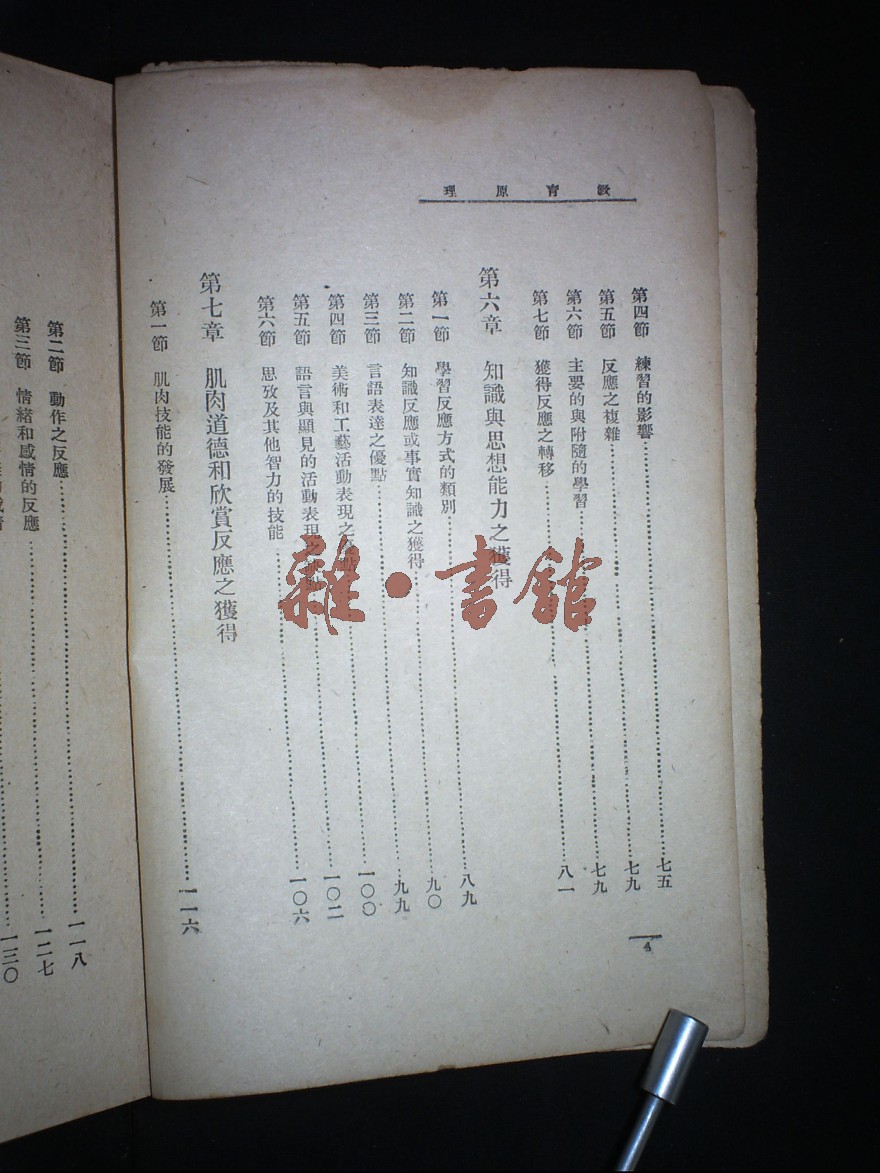 教育原理
第四節 練習的影響……七五
第五節 反應之複雜……七九
第六節 主要的與附隨的學習……七九
第七節 獲得反應之轉移……八一
第六章 知識與思想能力之獲得
第一節 學習反應方式的類別……八九
第二節 知識反應或事實知識之獲得……九〇
第三節 言語表達之優點……九九
第四節 美術和工藝活動表現之……一〇〇
第五節 語言與顯見的活動表現……一〇二
第六節 思攷及其他智力的技能……一〇六
第七章 肌肉道德和欣賞反應之獲得
第一節 肌肉技能的發展……一一六
4
第二節 動作之反應……一一八
第三節 情緒和感情的反應……一二七
一三〇
雜·書館